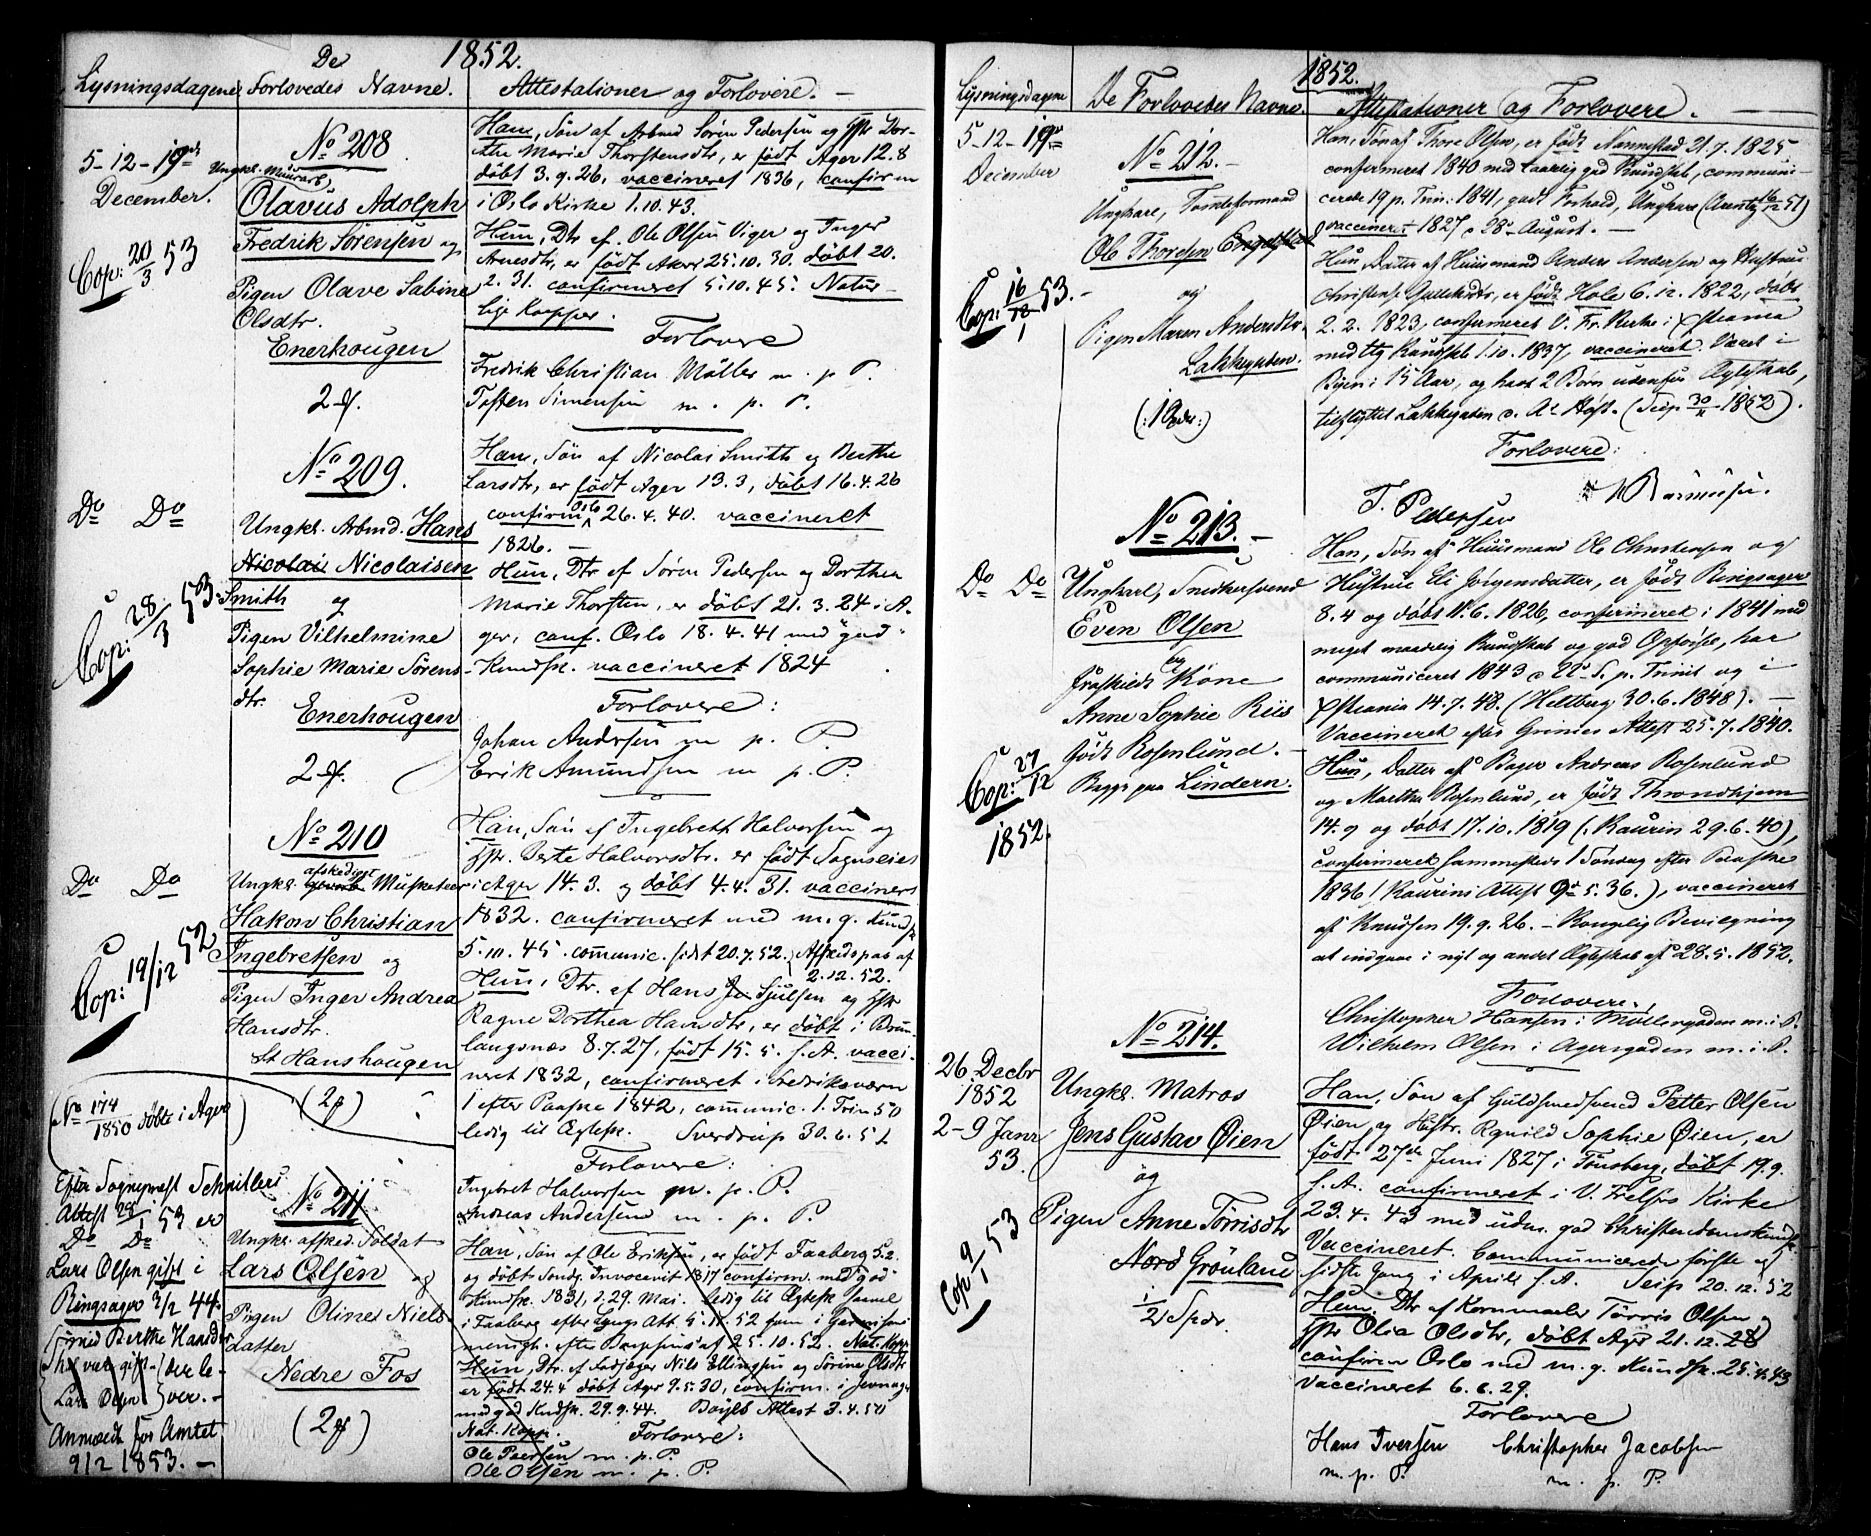 1852.
Lysningsdagene
De
Forlovedes Navne.
Attestationer og Forlovere. —
5-12-19de
December.
Cop: 20/3 53
No 208
Ungkl. Muurarb.
Olavus Adolph
Fredrik Sørensen og
Pigen Olave Sabine
Olsdtr.
Enerhougen
Han, Søn af Arbmd Søren Pedersen og Hstr Dor-
thе Marie Thorstensdtr, er født Ager 12.8
døbt 3.9.26, vaccineret 1836, confirm
i Oslo Kirke 1.10.43.
Hun, Dtr af Ole Olsen Viger og Inger
Arnesdtr, er født Aker 25.10.30. døbt 20.
2.31. confirmeret 5.10.45. Natur-
lige Kopper.
Forlovere
Fredrik Christian Möller m. p. P.
Tosten Simensen m. p. P.
Do Do
Cop: 28/3 53.
No 209.
Ungkl. Arbmd. Hans
Nicolai Nicolaisen
Smith og
Pigen Vilhelmine
Sophie Marie Sørens
dtr.
Enerhougen
Han, Søn af Nicolai Smith og Berthe
Larsdtr, er født Ager 13.3, døbt 16.4.26
confirm Oslo 26.4.40. vaccineret
1826. —
Hun, Dtr af Søren Pedersen og Dorthea
Marie Thorsten, er døbt 21.3.24 i A-
ger, conf. Oslo 18.4.41 med "god"
Kundsk. vaccineret 1824
Forlovere:
Johan Andersen m p. P.
Erik Amundsen m p. P.
Do Do
Cop: 19/12 52
No 210
Ungkl. afskediget Musketeer
Hakon Christian
Ingebretsen og
Pigen Inger Andrea
Hansdtr.
St Hanshougen
Han, Søn af Ingebrett Halvorsen og
Hstr. Berte Halvorsdtr. er født Sognsleies
i Ager 14.3. og døbt 4.4.31. vaccineret
1832. confirmeret med m. g. Kundsk
5.10.45. communic. sidst 20.7.52. Afskedspas af
2.12.52.
Hun, Dtr. af Hans Sjulsen og Hstr
Ragne Dorthea Havndtr, er døbt i Brun-
langsnæs 8.7.27, født 15.5. s.A. vacci-
neret 1832, confirmeret i Fredriksværn
1 efter Paaske 1842, communic. 1. Trin 50
ledig til Ægtesk. Sverdrup 30.6.51
Forlovere:
Ingebret Halvorsen m. p. P.
Andreas Andersen m. p. P.
(No 174/1850 døbte i Ager)
Efter Sognepræst Schnitlers
Attest 28/1 53 er
Do Do
Lars Olsen gift i
Ringsager 3/2 44.
Anmeldt for Amtet
9/2 1853. —
No 211
Ungkl. afsked. Soldat
Lars Olsen og
Pigen Oline Niels-
datter
Nedre Fos
Han, Søn af Ole Eriksen, er født Faaberg 5.2
og døbt Søndg. Invocavit 1817 confirm. med "god"
Kundsk. 1831, d. 29. Mai. ledig til Ægtesk samt
i Faaberg efter Lyngs Att. 5.11.52 som i Garnisons
menigh. efter Bruppius af 25.10.52. Nat. Kopp.
Hun, Dtr. af Nils Ellingsen og Sørine Olsdtr
er født 24.4 døbt Ager 9.5.30, confirm. i Jevnag.
med god Kndsk. 29.9.44. Attest 3.4.50
Nat. Kopp. Forlovere:
Ole Paersen m. p. P.
Ole Olsen m. p. P.
1852.
Lysningsdagene
De Forlovedes Navne.
Attestationer og Forlovere. —
5-12-19de
December
Cop: 16/1 53. —
No 212. —
Ungkarl, Tomteformand
Ole Thoresen Engestad
og
Pigen Maren Andersdtr.
Lakkegaden.
Han, Søn af Thore Olsen, er født Nannestad 21.7.1825
confirmeret 1840 med taarlig god Kundskb, communi-
cerede 19 p. Trin: 1841, godt Forhold, Ungkarl (Arentz 16/12 51)
vaccineret 1827 28de August. —
Hun, Datter af Huusmand Anders Andersen og Hustrue
Christense Gulleksdtr, er født Hole 6.12.1822, døbt
2.2.1823, confirmeret V. Fr. Kirke i Xstiania
med tlg Kundskb 1.10.1837, vaccineret. Været i
Byen i 15 Aar, og havt 2 Børn udenfor Ægteskab,
tilflyttet Lakkegaden d. A. Høst. (Seip 30/11 1852).
Forlovere:
T. Pedersen
Do Do
Cop: 27/12
1852.
No 213. —
Ungkarl, Snedkersvend
Even Olsen
og
fraskildt Kone
Anne Sophie Riis
født Rosenlund. —
Begge paa Lindern.
Han, Søn af Huusmand Ole Christensen og
Hustrue Eli Jørgensdatter, er født Ringsager
8.4 og døbt 11.6.1826, confirmeret i 1841 med
meget maadelig Kundskab og god Opførsel, har
communiceret 1843 22de S. p. Trinit og i
Xstiania 14.7.48. (Heltberg 30.6.1848). —
Vaccineret efter Grinies Attest 25.7.1840.
Hun, Datter af Bager Andreas Rosenlund
og Martha Rosenlund, er født Throndhjem
14.9 og døbt 17.10.1819 (Kaurin 29.6.40),
confirmeret sammesteds 1 Søndag efter Paaske
1836 (Kaurins Attest 9de 5.36.), vaccineret
af Knudsen 19.9.26. — Kongelig Bevilgning
at indgaae i nyt og andet Ægteskab af 28.5.1852.
Forlovere.
Christopher Hansen i Møllergaden m.i.P.
Wilhelm Olsen i Agersgaden m.i.P.
26 Decbr
1852
2-9 Janr
53.
Cop 9/1 53
No 214.
Ungkl. Matros
Jens Gustav Øien
og
Pigen Anne Torrisdtr
Nord Grönland
1/2 Spdr.
Han, Søn af Guldsmedsvend Petter Olsen
Øien, og Hustr. Ragnild Sophie Øien, er
født 27de Juni 1827 i Tønsberg, døbt 19.9.
s.A. confirmeret i V. Frelsers Kirke
23.4.43 med udm. god Christendomskundsk.
Vaccineret. Communicerede første og
sidste Gang i Aprill s.A. Seip 20.12.52
Hun, Dtr. af Kornmaaler Torris Olsen og
Hstr Olia Olsdtr, døbt Ager 21.12.28
confirm Oslo med m. g. Kundsk. 25.4.43
vaccineret 6.6.29.
Forlovere
Hans Iversen Christopher Jacobsen
m. p. P. m. p. P.